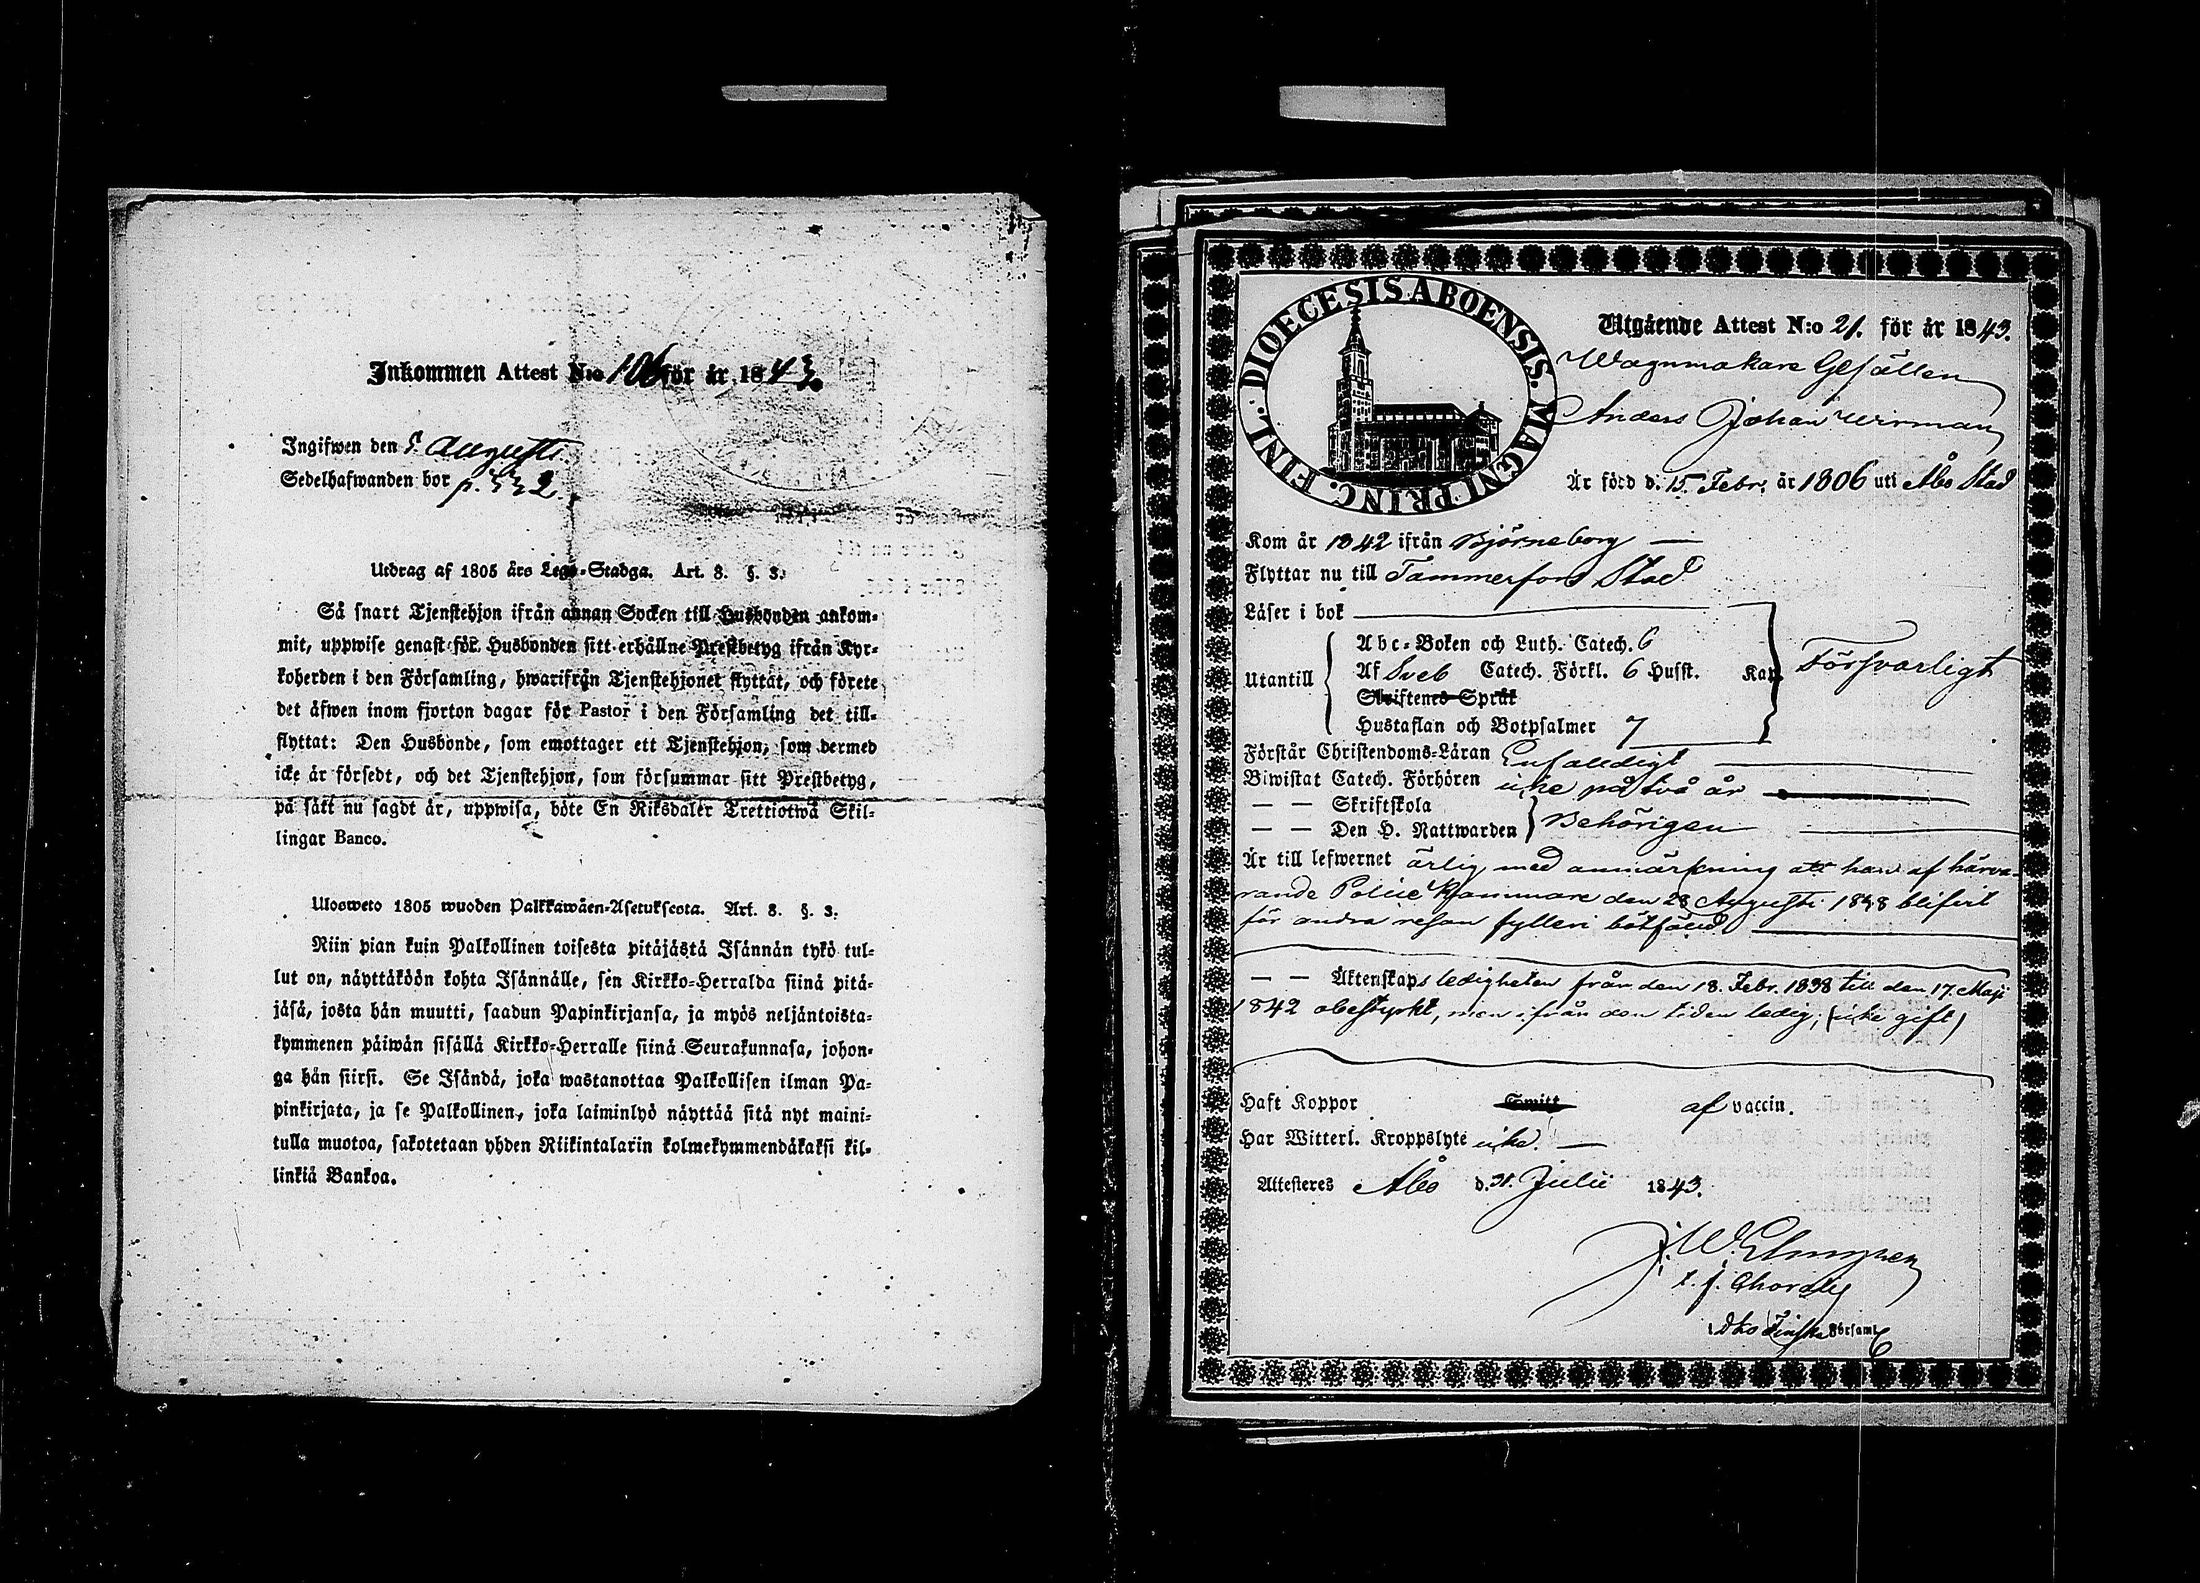 Inkommen Attest N:o 106 för år 1843.
Ingifwen den 5. Augusti.
Sedelhafwanden bor p. 532.
Utdrag af 1805 års Lego-Stadga. Art. 8. §. 3.
Så snart Tjenstehjon ifrån annan Socken till Husbonden ankom-
mit, uppwise genast för Husbonden sitt erhållne Prestbetyg ifrån Kyr-
koherden i den Församling, hwarifrån Tjenstehjonet flyttat, och förete
det äfwen inom fjorton dagar för Pastor i den Församling det till-
flyttat: Den Husbonde, som emottager ett Tjenstehjon, som dermed
icke är försedt, och det Tjenstehjon, som försummar sitt Prestbetyg,
på sätt nu sagdt är, uppwisa, böte En Riksdaler Trettiotwå Skil-
lingar Banco.
Ulosweto 1805 wuoden Palkkawäen-Asetuksesta. Art. 8. §. 3.
Niin pian kuin Palkollinen toisesta pitäjästä Isännän tykö tul-
lut on, näyttäköön kohta Isännälle, sen Kirkko-Herralda siinä pitä-
jäsä, josta hän muutti, saadun Papinkirjansa, ja myös neljäntoista-
kymmenen päiwän sisällä Kirkko-Herralle siinä Seurakunnasa, johon-
ga hän siirsi. Se Isändä, joka wastanottaa Palkollisen ilman Pa-
pinkirjata, ja se Palkollinen, joka laiminlyö näyttää sitä nyt maini-
tulla muotoa, sakotetaan yhden Riikintalarin kolmekymmendäkaksi kil-
linkiä Bankoa.
DIOECESIS ABOENSIS. MAGNI PRINC. FINL.
Utgående Attest N:o 21. för år 1843.
Wagnmakare Gesällen
Anders Johan Wirman
Är född d. 15. Febr. år 1806 uti Åbo Stad
Kom år 1842 ifrån Björneborg
Flyttar nu till Tammerfors Stad
Läser i bok
Utantill
Abc-Boken och Luth. Catech. 6
Af Sveb Catech. Förkl. 6 Husst. Kap. Försvarligt
Skriftenes Språk
Hustaflan och Botpsalmer 7
Förstår Christendoms-Läran Enfaldigt
Biwistat Catech. Förhören icke på två år
— — Skriftskola
— — Den H. Nattwarden Behörigen
Är till lefwernet ärlig, med anmärkning att han af härva-
rande Police Kammare den 28 Augusti 1838 blifvit
för andra resan fylleri bötfäld.
— — Äktenskaps ledigheten från den 18. Febr. 1838 till den 17. Maji
1842 obestyrkt, men ifrån den tiden ledig, (icke gift)
Haft Koppor af vaccin.
Har Witterl. Kroppslyte icke.
Attesteres Åbo d. 31. Julii 1843.
Församl